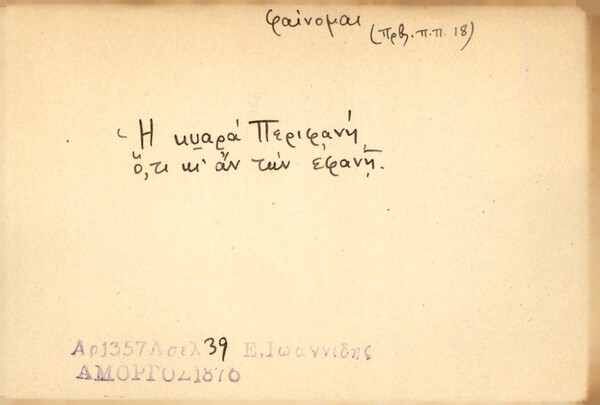 φαίνομαι
(Πρβ. π.π. 18)
Ἡ κυαρά Περιφανή
ὅ,τι κι' ἄν τήν ἐφανῇ.
Αρ1357Ασελ 39 Ε,Ιωαννιδης
ΑΜΟΡΓΟΣ1876